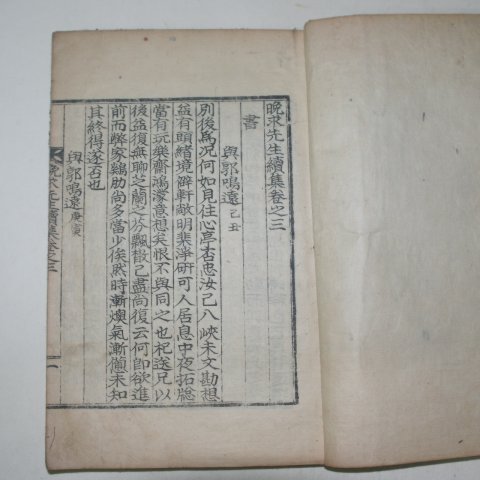 晩求先生續集卷之三
書
與郭鳴遠 己丑
別後爲況何如見住心亭否忠汝已八峽未文勘想
益有頭緖境僻軒敞明棐淨硏可人居息中夜拓牕
當有玩樂齋鴻濛意想矣恨不與同之也祀送兄以
後益復無聊芝蘭之芬飄散已盡尙復云何卽欲進
前而弊家鷄肋尙多當少俟熙時漸燠氣漸傾未知
其終得遂否也
與郭鳴遠 庚寅
晩求先生續集卷之三
一